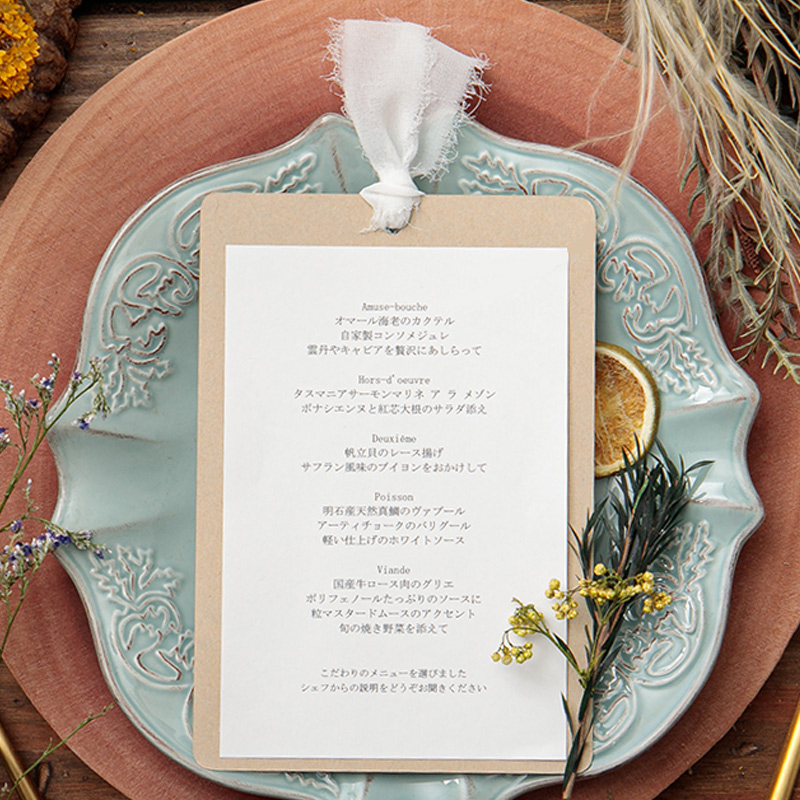 Amuse-bouche
オマール海老のカクテル
自家製コンソメジュレ
雲丹やキャビアを贅沢にあしらって
Hors-d'oeuvre
タスマニアサーモンマリネ ア ラ メゾン
ボナシエンヌと紅芯大根のサラダ添え
Deuxiéme
帆立貝のレース揚げ
サフラン風味のブイヨンをおかけして
Poisson
明石産天然真鯛のヴァプール
アーティチョークのバリグール
軽い仕上げのホワイトソース
Viande
国産牛ロース肉のグリエ
ポリフェノールたっぷりのソースに
粒マスタードムースのアクセント
旬の焼き野菜を添えて
こだわりのメニューを選びました
シェフからの説明をどうぞお聞きください